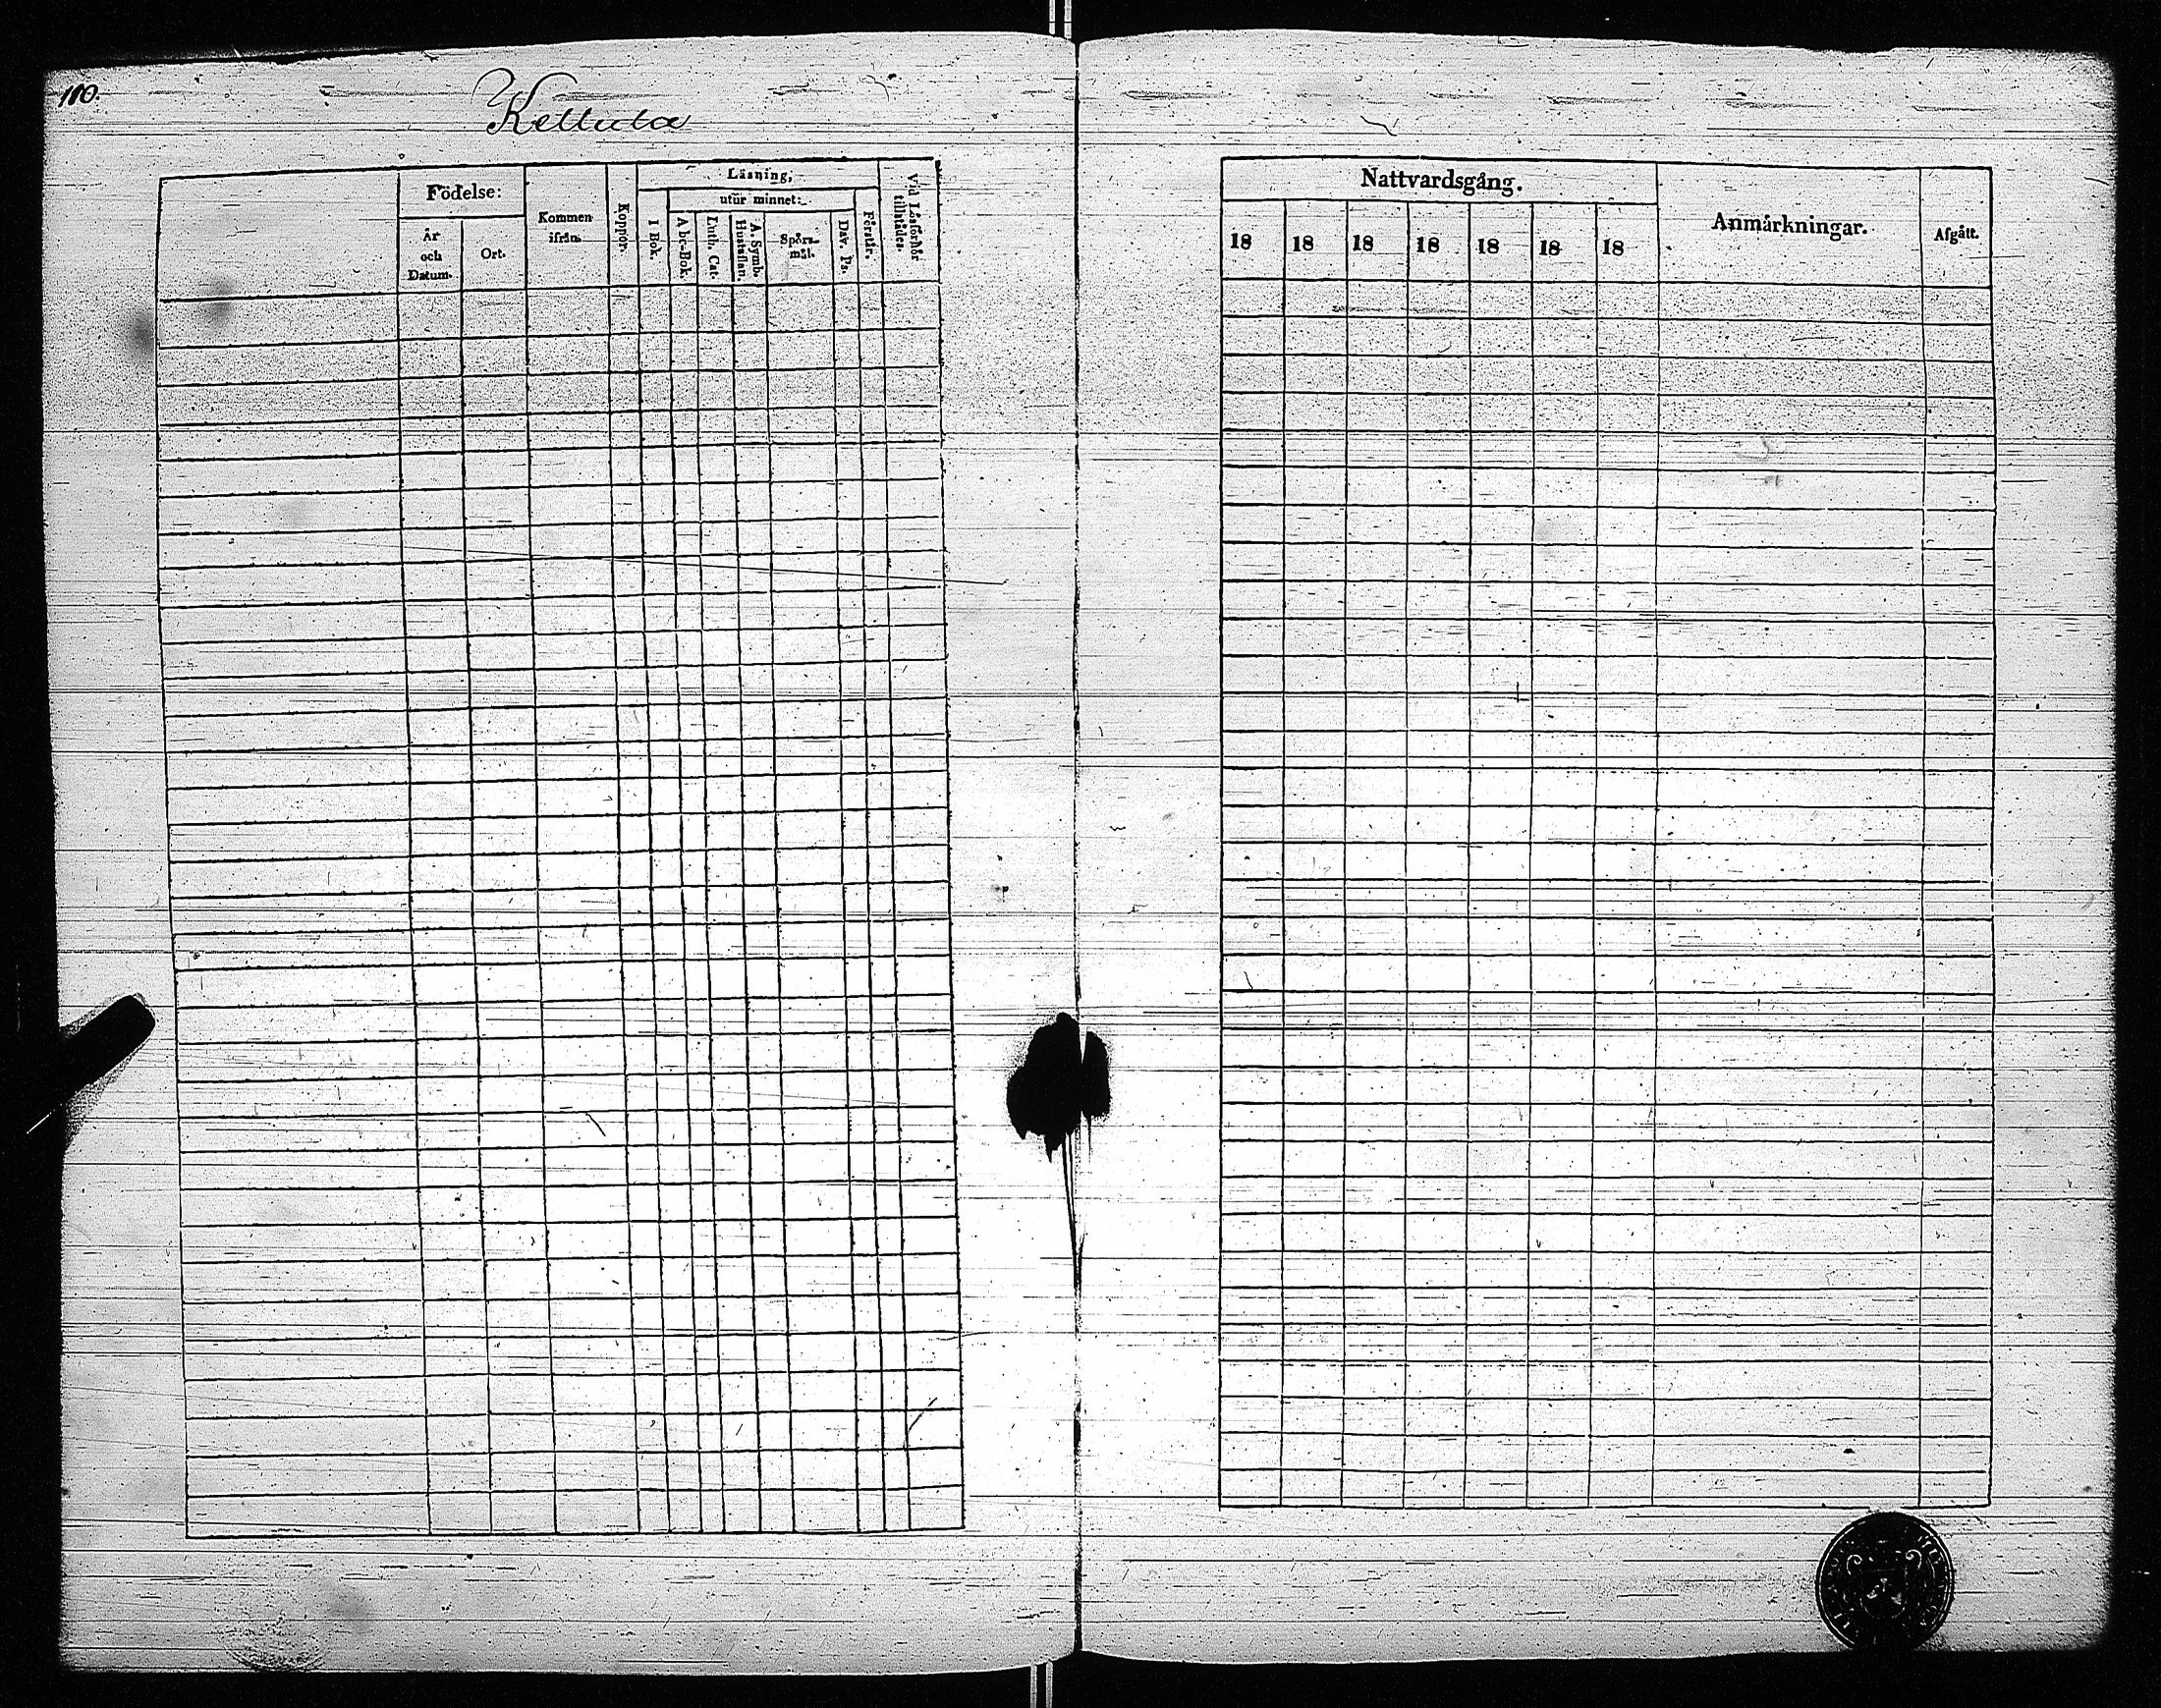 110.
Kettula
Födelse:
År och Datum.
Ort.
Kommen ifrån.
Koppor.
Läsning,
I Bok.
utur minnet:
Abc-Bok.
Luth. Cat.
A. Symb. Hustaflan.
Spörsmål.
Dav. Ps.
Förstår.
Vid Läsförhör tillstädes.
Nattvardsgång.
18 18 18 18 18 18 18
Anmärkningar.
Afgått.